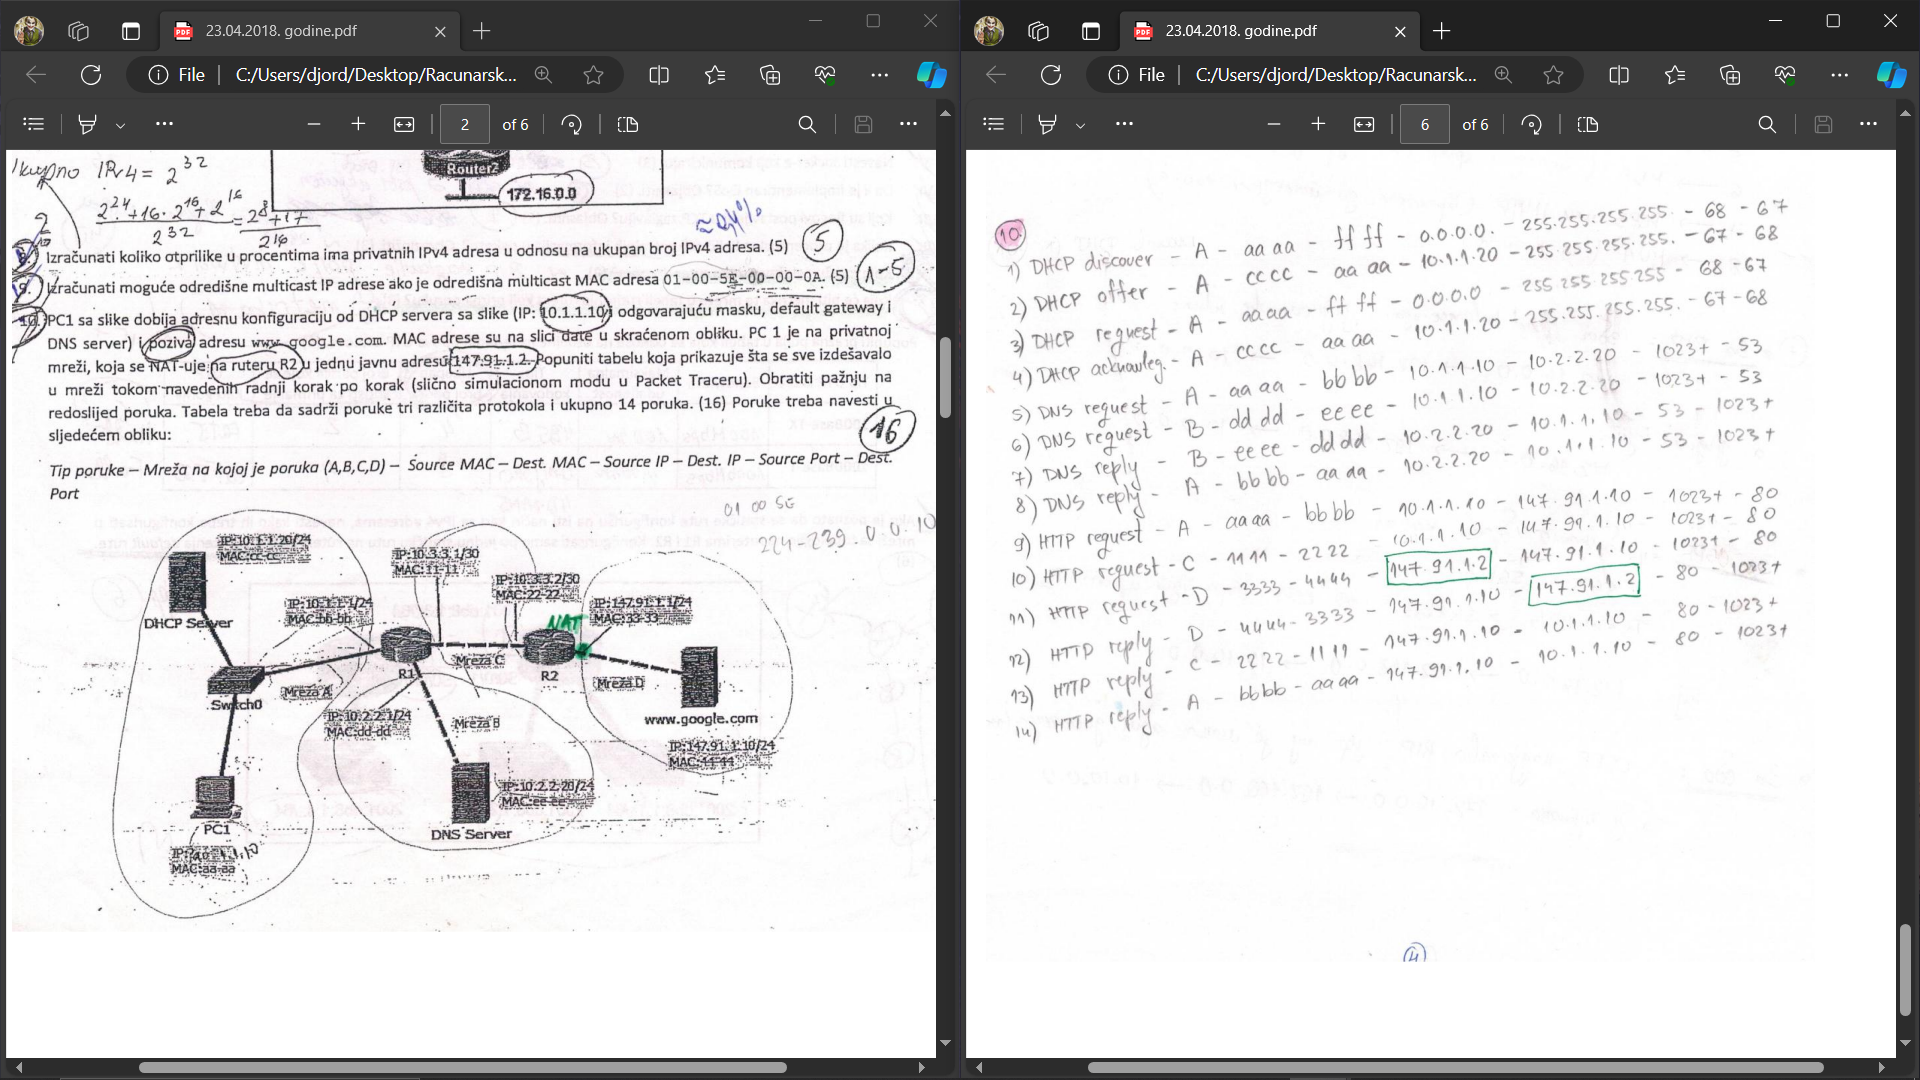 23.04.2018. godine.pdf
File
C:/Users/djord/Desktop/Racunarsk...
2 of 6
Ukupno IPv4 = 2^32
2^24 + 16 · 2^16 + 2^16 / 2^32 = 2^8 + 17 / 2^16
Router2
172.16.0.0
≈ 0,4%
8. Izračunati koliko otprilike u procentima ima privatnih IPv4 adresa u odnosu na ukupan broj IPv4 adresa. (5)
5
9. Izračunati moguće odredišne multicast IP adrese ako je odredišna multicast MAC adresa 01-00-5E-00-00-0A. (5)
1-5
10. PC1 sa slike dobija adresnu konfiguraciju od DHCP servera sa slike (IP: 10.1.1.10 i odgovarajuću masku, default gateway i
DNS server) i poziva adresu www.google.com. MAC adrese su na slici date u skraćenom obliku. PC 1 je na privatnoj
mreži, koja se NAT-uje na ruteru R2 u jednu javnu adresu 147.91.1.2. Popuniti tabelu koja prikazuje šta se sve izdešavalo
u mreži tokom navedenih radnji korak po korak (slično simulacionom modu u Packet Traceru). Obratiti pažnju na
redoslijed poruka. Tabela treba da sadrži poruke tri različita protokola i ukupno 14 poruka. (16) Poruke treba navesti u
sljedećem obliku:
16
Tip poruke – Mreža na kojoj je poruka (A,B,C,D) – Source MAC – Dest. MAC – Source IP – Dest. IP – Source Port – Dest.
Port
01 00 5E
224-239.0.0.10
IP:10.1.1.20/24
MAC:cc-cc
DHCP Server
IP:10.3.3.1/30
MAC:11-11
IP:10.3.3.2/30
MAC:22-22
IP:10.1.1.1/24
MAC:bb-bb
IP:147.91.1.1/24
MAC:33-33
NAT
R1
Mreza C
R2
Mreza D
Mreza A
Switch0
IP:10.2.2.1/24
MAC:dd-dd
Mreza B
www.google.com
IP:147.91.1.10/24
MAC:44-44
IP:10.2.2.20/24
MAC:ee-ee
PC1
DNS Server
IP:10.1.1.10
MAC:aa-aa
23.04.2018. godine.pdf
File
C:/Users/djord/Desktop/Racunarsk...
6 of 6
10.
1) DHCP discover - A - aa aa - ff ff - 0.0.0.0. - 255.255.255.255. - 68 - 67
2) DHCP offer - A - cccc - aa aa - 10.1.1.20 - 255.255.255.255. - 67 - 68
3) DHCP request - A - aaaa - ff ff - 0.0.0.0 - 255.255.255.255 - 68 - 67
4) DHCP acknowleg. - A - cccc - aa aa - 10.1.1.20 - 255.255.255.255. - 67 - 68
5) DNS request - A - aa aa - bb bb - 10.1.1.10 - 10.2.2.20 - 1023+ - 53
6) DNS request - B - dd dd - ee ee - 10.1.1.10 - 10.2.2.20 - 1023+ - 53
7) DNS reply - B - ee ee - dd dd - 10.2.2.20 - 10.1.1.10 - 53 - 1023+
8) DNS reply - A - bb bb - aa aa - 10.2.2.20 - 10.1.1.10 - 53 - 1023+
9) HTTP request - A - aaaa - bb bb - 10.1.1.10 - 147.91.1.10 - 1023+ - 80
10) HTTP request - C - 1111 - 2222 - 10.1.1.10 - 147.91.1.10 - 1023+ - 80
11) HTTP request - D - 3333 - 4444 - 147.91.1.2 - 147.91.1.10 - 1023+ - 80
12) HTTP reply - D - 4444 - 3333 - 147.91.1.10 - 147.91.1.2 - 80 - 1023+
13) HTTP reply - C - 2222 - 1111 - 147.91.1.10 - 10.1.1.10 - 80 - 1023+
14) HTTP reply - A - bbbb - aaaa - 147.91.1.10 - 10.1.1.10 - 80 - 1023+
4